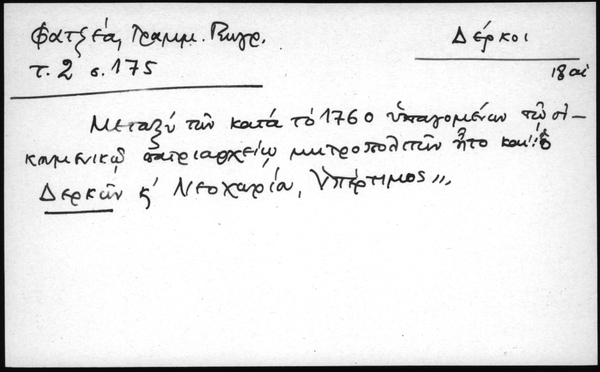 Φατζέα, Γραμμ. Γεωγρ.
Δέρκοι
τ. 2 σ. 175
18 αι
Μεταξύ τῶν κατά τό 1760 ὑπαγομένων τῷ οἰ-
κουμενικῷ πατριαρχείῳ μητροπολιτῶν ἦτο καί: "ὁ
Δερκῶν κ' Νεοχωρίου, Ὑπέρτιμος",